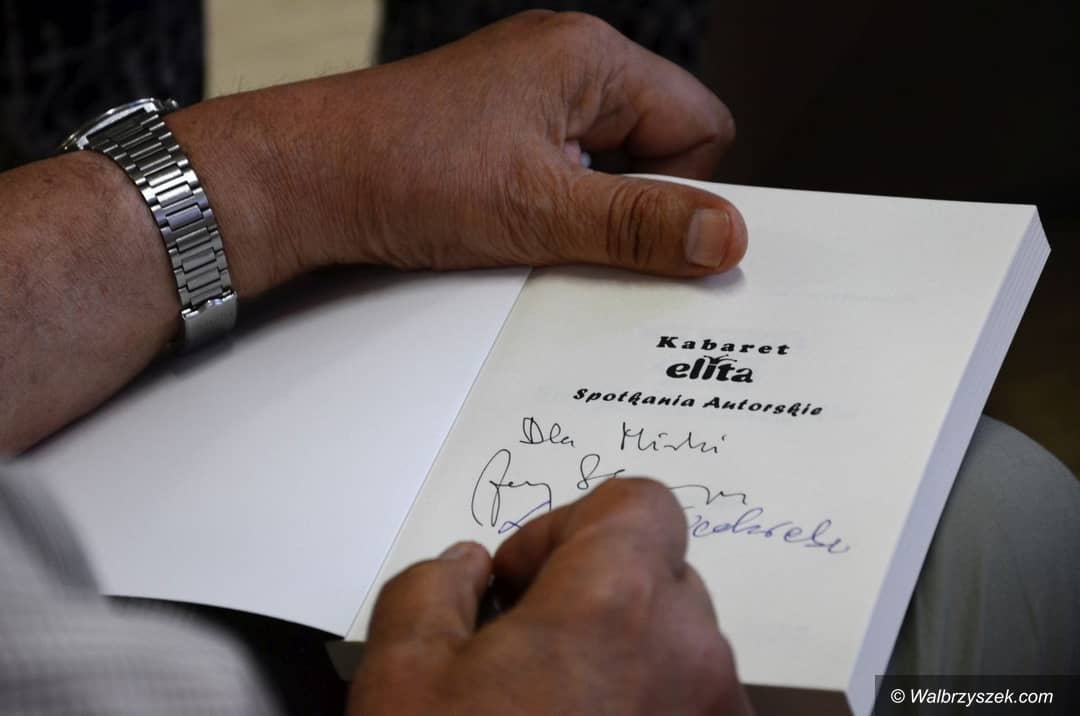 Kabaret
elita
Spotkania Autorskie
Dla Mirki
Jerzy
© Walbrzyszek.com